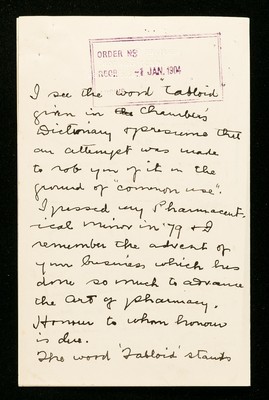 ORDER NO
RECD -1 JAN. 1904
I see the word 'Tabloid'
given in the Chambers's
Dictionary & presume that
an attempt was made
to rob you of it on the
ground of "common use".
I passed my Pharmaceut-
ical minor in '79 & I
remember the advent of
your business which has
done so much to advance
the art of pharmacy.
Honour to whom honour
is due.
The word 'Tabloid' stands